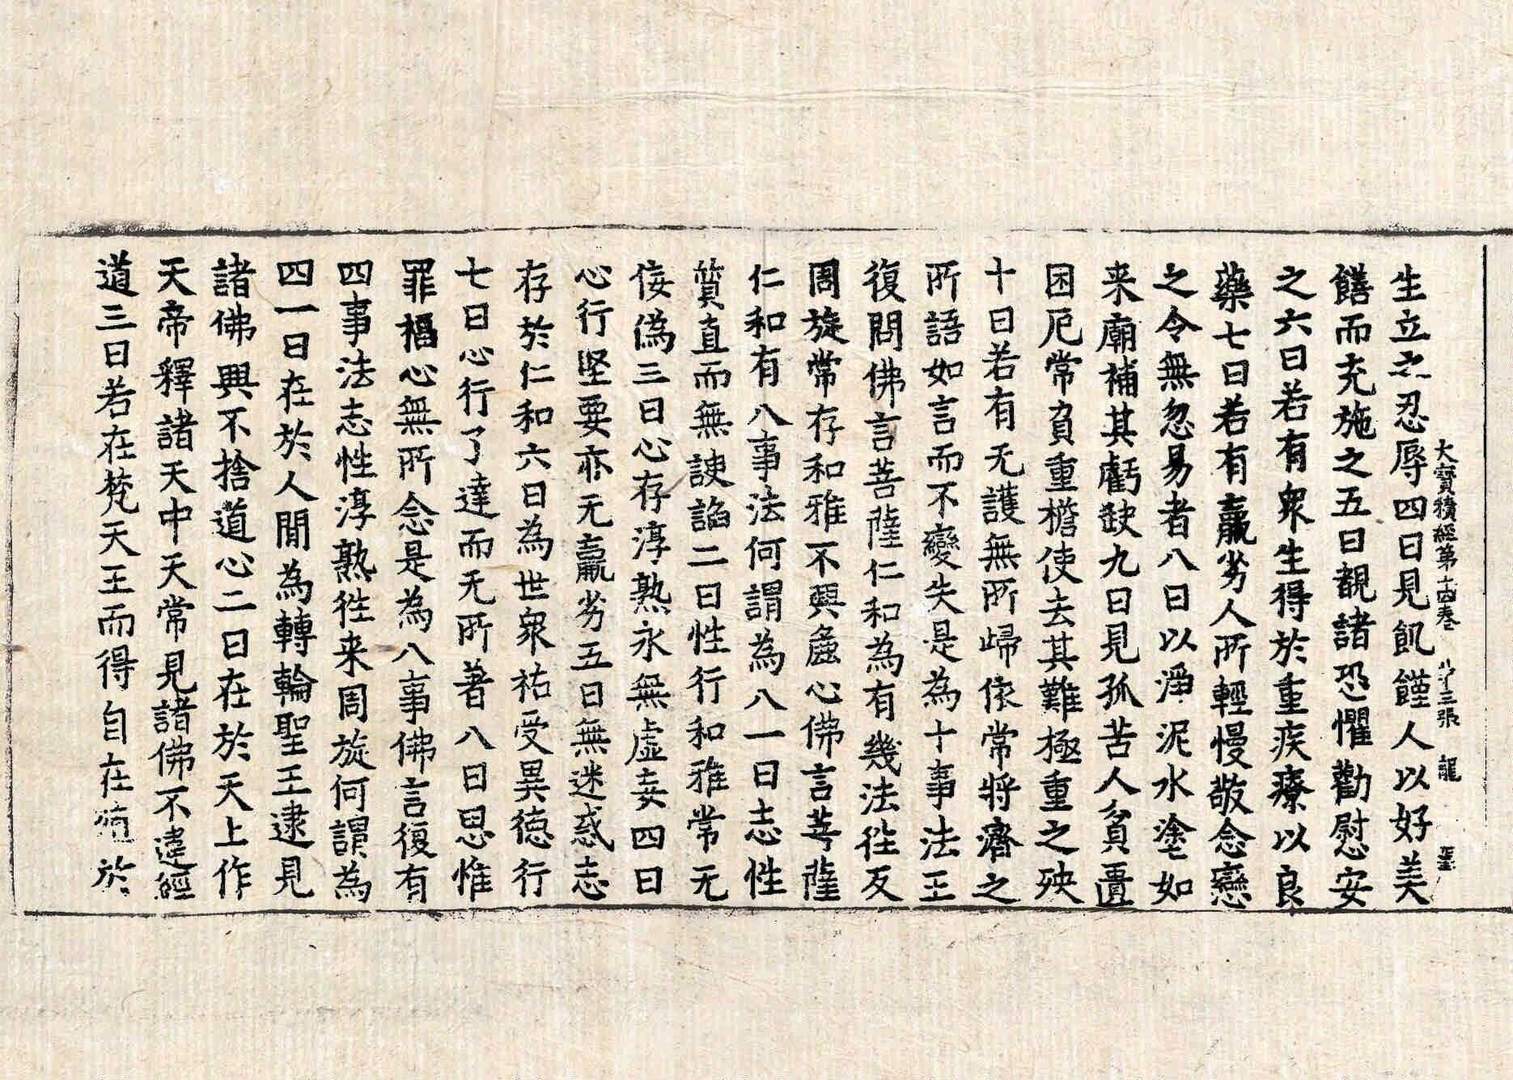 大寶積經第十四卷 第三張 龍
生立之忍辱四曰見飢饉人以好美
饍而充施之五曰覩諸恐懼勸慰安
之六曰若有衆生得於重疾療以良
藥七曰若有羸劣人所輕慢敬念戀
之令無忽易者八曰以淨泥水塗如
来廟補其虧缺九曰見孤苦人貧匱
困厄常負重檐使去其難極重之殃
十曰若有无護無所歸依常將濟之
所語如言而不變失是為十事法王
復問佛言菩薩仁和為有幾法往反
周旋常存和雅不興麁心佛言菩薩
仁和有八事法何謂為八一曰志性
質直而無諛諂二曰性行和雅常无
佞偽三曰心存淳熟永無虛妄四曰
心行堅要亦无羸劣五曰無迷惑志
存於仁和六曰為世衆祐受異德行
七曰心行了達而无所著八曰思惟
罪福心無所念是為八事佛言復有
四事法志性淳熟徃来周旋何謂為
四一曰在於人間為轉輪聖王逮見
諸佛興不捨道心二曰在於天上作
天帝釋諸天中天常見諸佛不違經
道三曰若在梵天王而得自在 於